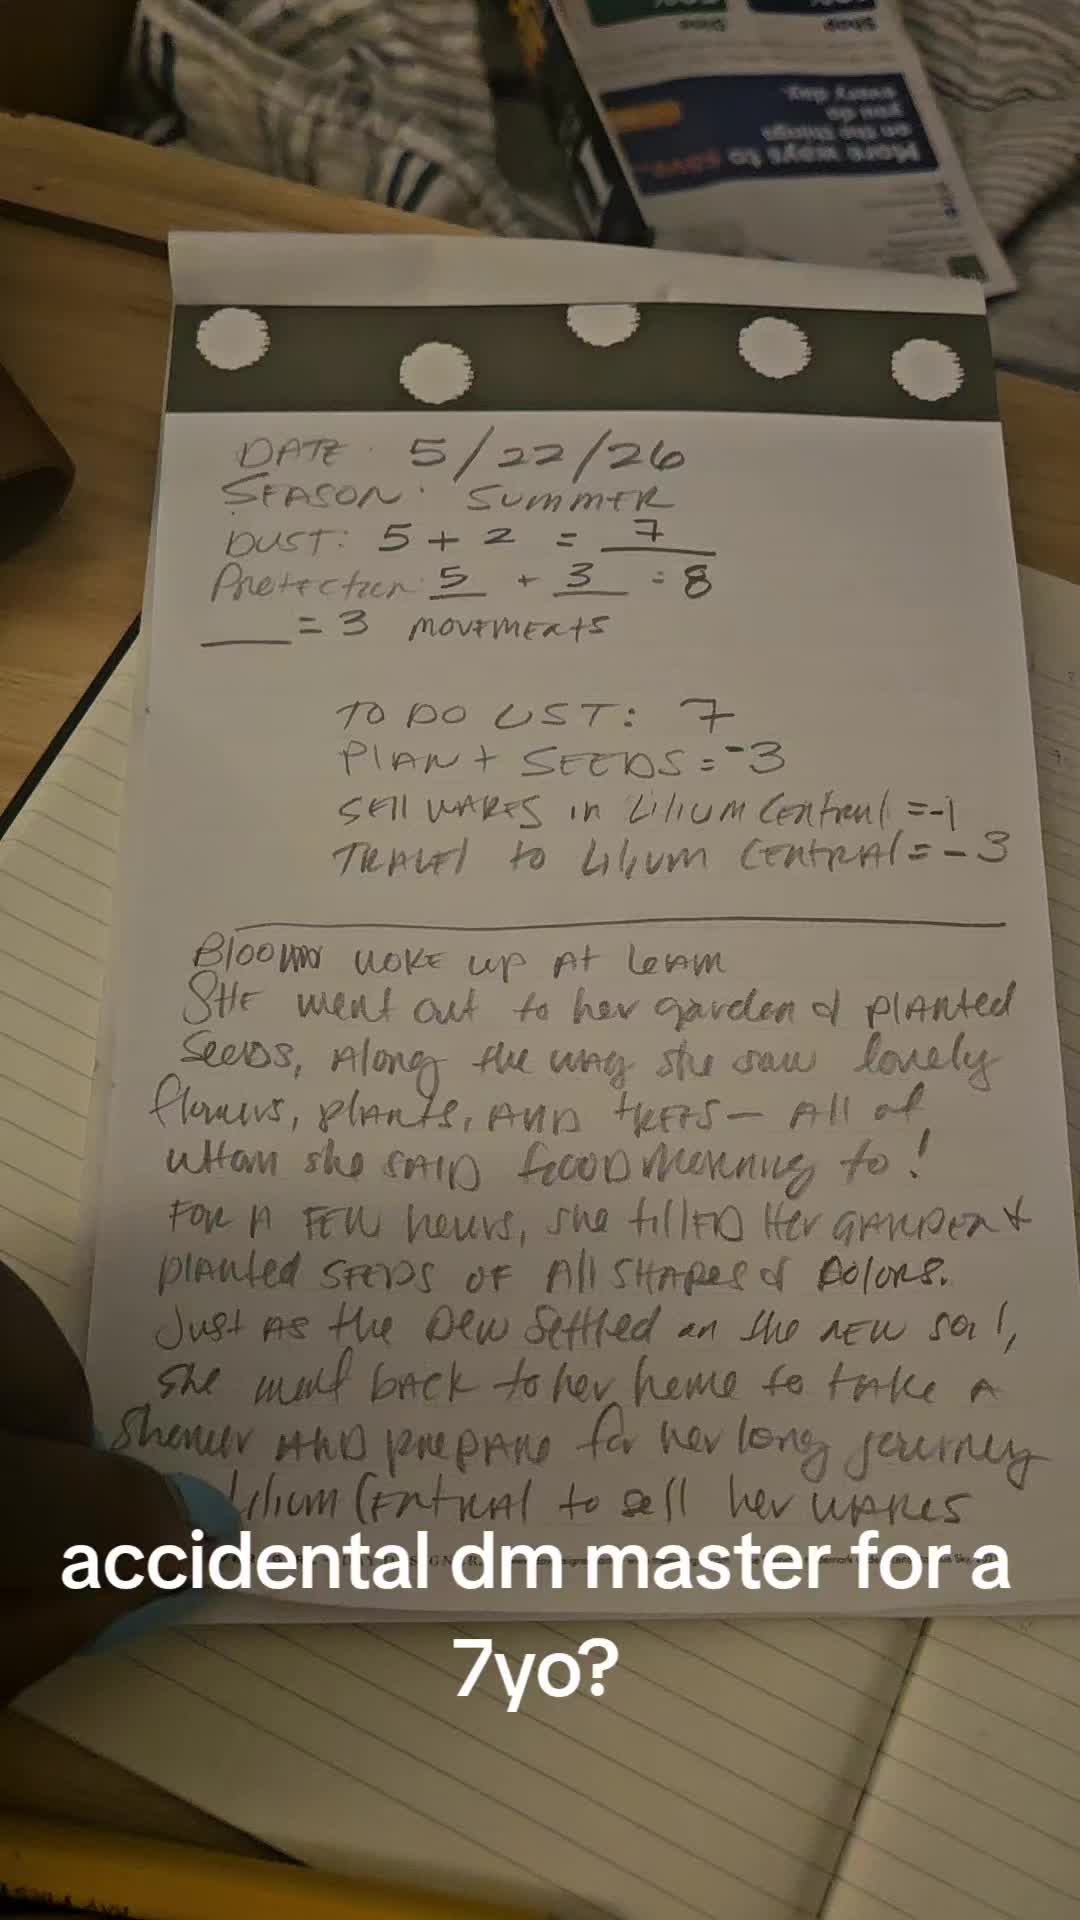 More ways to save...
on the things
you do
every day.
Shop
DATE: 5/22/26
SEASON: SUMMER
DUST: 5 + 2 = 7
Protection: 5 + 3 = 8
___ = 3 MOVEMENTS
TO DO LIST: 7
PLANT SEEDS = -3
SELL WARES in Lilium Central = -1
TRAVEL to Lilium CENTRAL = - 3
woke up At 6AM
SHE went out to her garden & PLANTED
Seeds, Along the way she saw lovely
flowers, plants, AND tREES — All of
whom she SAID GOOD Morning to!
FOR A FEW hours, she tillED Her GARDEN &
planted SEEDS OF All SHAPES & Colors.
Just AS the Dew Settled on the NEW soil,
she went back to her home to tAKE A
Shower AND prepare for her long journey
Lilium CENTRAL to sell her WARES
accidental dm master for a
7yo?